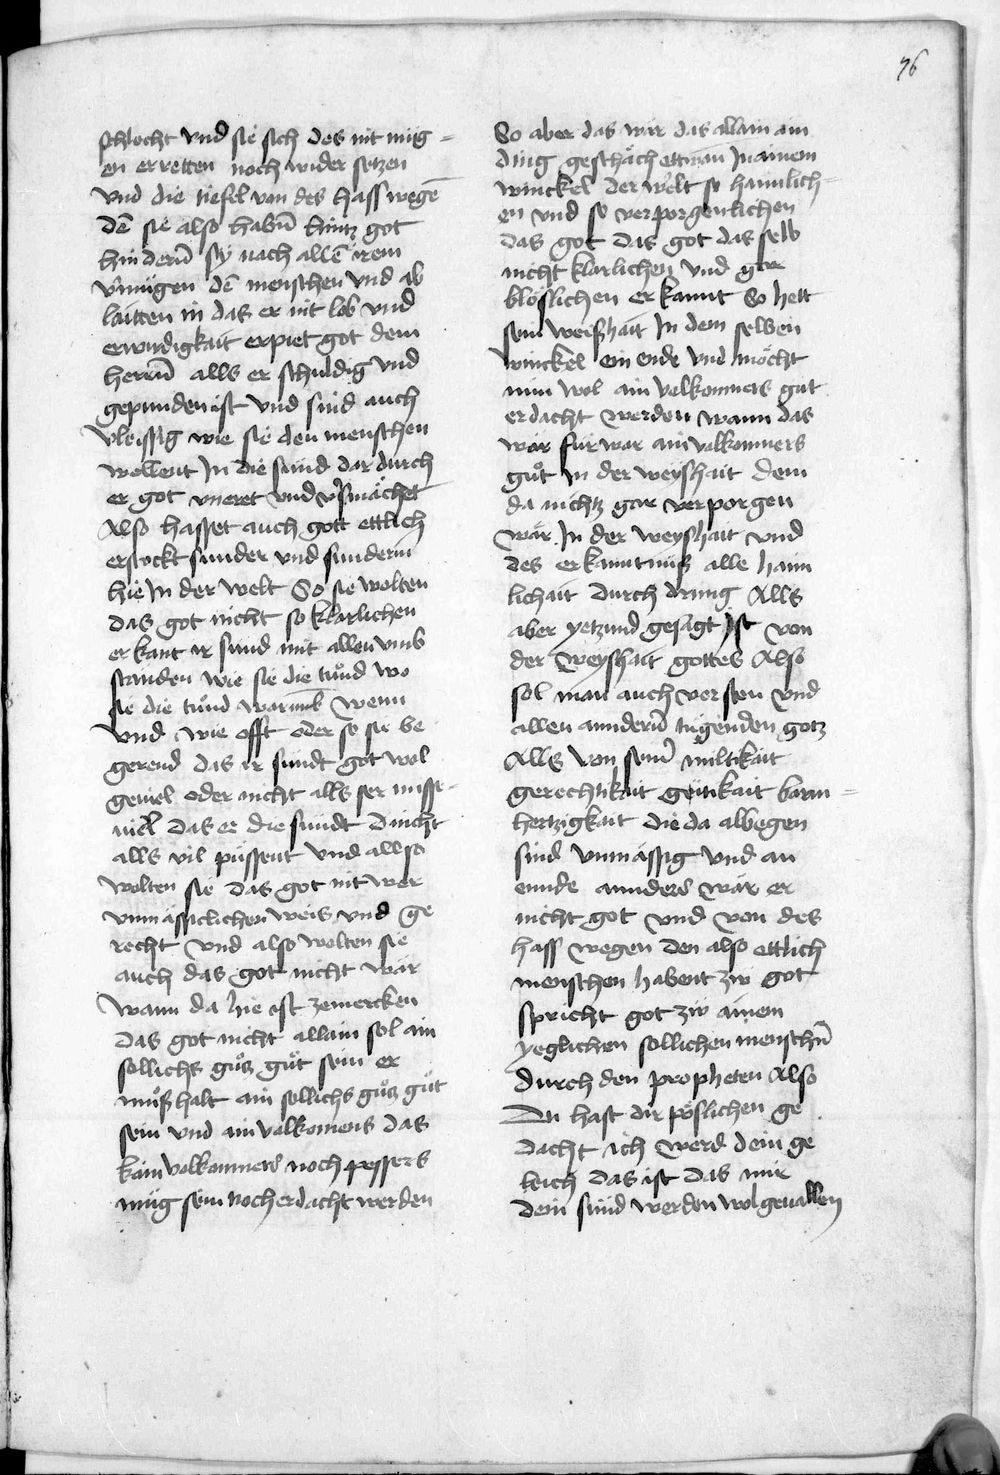 76
schlecht vnd sie sich des nit müg-
en erretten noch wider setzen
vnd die tiefel von des hass wegē
dē sie also habn̄ hintz got
hindern̄ sy nach allē irem
v̄mügen dē menschen vnd ab
laitten in das er nit lob vnd
erwirdigkait erpiet got dem
herrn̄ alls er schuldig vnd
gepunden ist vnd sind auch
vleissig wie sie den menschen
wellent In die sünd dar durch
er got vneret vnd v̄smächet
Also hasset auch gott ettlich
erstockt sunder vnd sunderin
hie In der welt So sie wolten
das got nicht so klarlichen
erkant ir sünd mit allen vmb
stānden wie sie die tůnd wo
sie die tůnd warumb wenn
vnd wie offt oder so sie be
gerend das ir sündt got wol
geuiel oder nicht alls ser misse-
uiel das er die sündt dincht
alls vil püssent vnd allso
wolten sie das got nit wer
vnmässiclichen weis vnd ge
recht vnd also wolten sie
auch das got nicht wär
wann da hie ist zemercken
das got nicht allain sol ain
sollichs gůz gůt sein er
můß halt ain sollichs gůz gůt
sein vnd ain volkomens das
kain volkomners noch pessers
müg sein noch erdacht werden
So aber das wär das allain ain
ding geschäch ettwan In ainem
winckel der welt so haimlich-
en vnd so verporgenlichen
das got das got das selb
nicht klarlichen vnd gar
blöslichen erkannt So hett
sein weißhait In dem selben
winckel ein ende vnd möcht
nim wol ain volkomners gut
erdacht werden wann das
wär für war ain volkomners
gůt In der weyshait dem
da nichtz gar verporgen
wär In der weyshait vnd
des erkanntnüß alle haim
lichait durch dring Alls
aber yetzund gesagt Ist von
der weyshait gottes Also
sol man auch versten vnd
allen anndern̄ tugenden gotz
Alls von seinr̄ miltikait
gerechtikait gütikait barm-
hertzigkait die da albegen
sind vnmässig vnd an
ennde annders wär er
nicht got vnd von des
hass wegen den also ettlich
menschen habent zw got
spricht got zw ainem
yeglichen sollichen menschn̄
durch den propheten Also
Du hast dir pöslichen ge
dacht ich werd dein ge
leich das ist das mir
dein sünd werden wolgeuallen